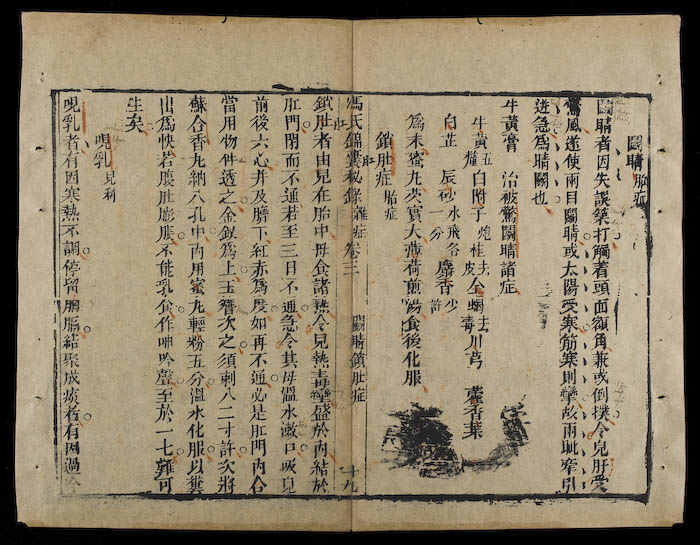 鬪睛 胎症
鬪睛者因失誤築打觸着頭面額角兼或倒撲令兒肝受
驚風遂使兩目鬪睛或太陽受寒筋寒則攣故兩眦牽引
逆急爲睛鬪也
牛黃膏 治被驚鬪睛諸症
牛黃五釐 白附子炮 桂去皮 全蝎去毒 川芎 藿香葉
白芷 辰砂水飛各一分 麝香少許
爲末蜜丸芡實大薄荷煎湯食後化服
鎖肚症 胎症
馮氏錦囊秘錄雜症卷三 鬪睛鎖肚症 十九
鎖肚者由兒在胎中母食諸熱令兒熱毒壅盛於內結於
肛門閉而不通若至三日不通急令其母溫水漱口吸兒
前後六心并及臍下紅赤爲度如再不通必是肛門內合
當用物件透之金釵爲上玉簪次之須刺入二寸許次將
蘇合香丸納入孔中內用蜜丸輕粉五分溫水化服以糞
出爲快若腹肚膨脹不能乳食作呻吟聲至於一七難可
生矣
哯乳 兒科
哯乳者有因寒熱不調停留胸膈結聚成痰者有因過